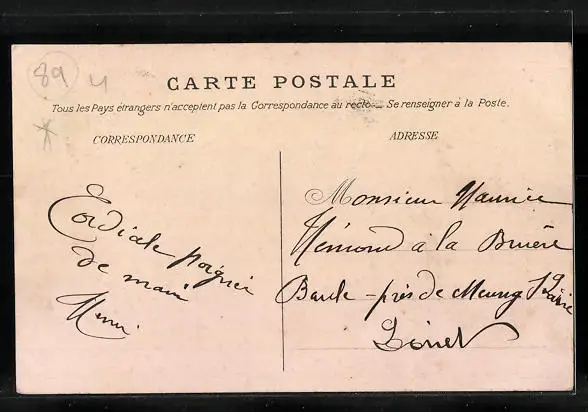 89 4
CARTE POSTALE
Tous les Pays étrangers n'acceptent pas la Correspondance au recto. — Se renseigner à la Poste.
CORRESPONDANCE
ADRESSE
Cordiale poignée
de main
Henri
Monsieur Maurice
Hémond à la Bruère
Baule - près de Meung s/ Loire
Loiret